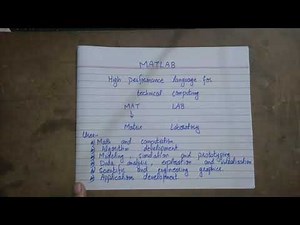 MATLAB
High performance language for
technical computing
MAT LAB
↓
Matrix Laboratory
Uses:-
a) Math and computation
b) Algorithm development
c) Modeling, simulation and prototyping
d) Data analysis, exploration and visualization
e) Scientific and engineering graphics.
f) Application development.